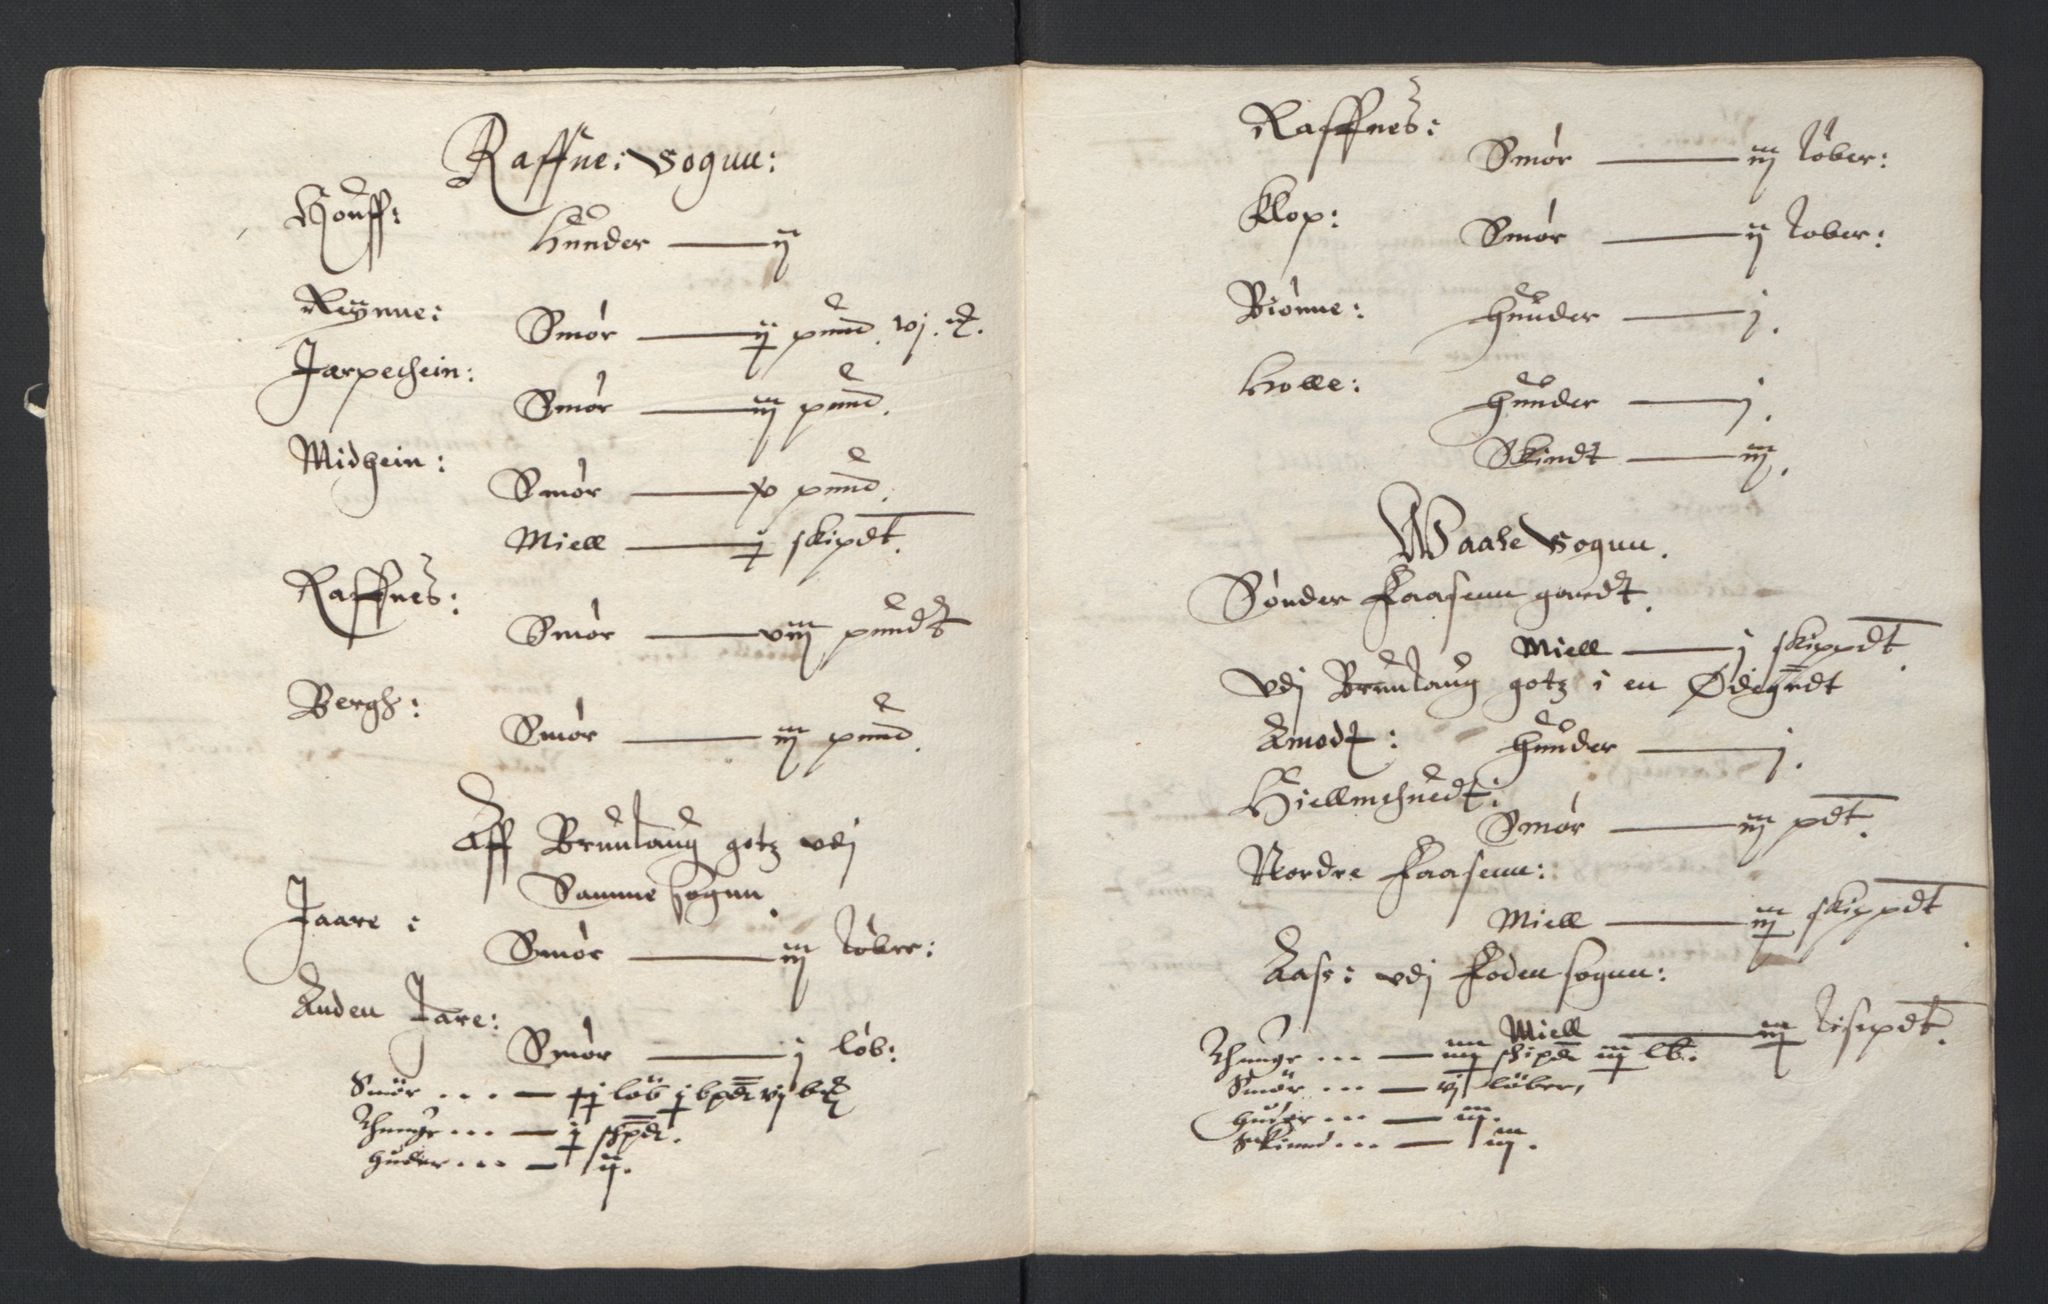 Raffne: Sognn:
Houff:
Huuder — ij
Reynne:
Smør — ij pund. vj. ℔.
Jarpethein:
Smør — iij pund.
Midhein:
Smør — v pund.
Miell — j skipdt.
Raffnes:
Smør — viij pundt
Bergh:
Smør — iij pund.
Aff Brunlaug gotz vdj
Samme sognn.
Jaare:
Smør — iij løber:
Anden Jare:
Smør — j løb:
Smör ... — löb j bpd vj
Thunge ... — j shpd.
Huder ... — ij.
Raffnes:
Smør — iij løber:
Klop:
Smør — ij løber:
Biønne:
Huuder — j.
Holle:
Huuder — j.
Skindt — iij.
Waale Sognn.
Sønder Faasenn gaardt.
Miell — j skippdt.
vdj Brunlaug gotz i en Ødegrdt
Amodt:
Huuder — j.
Hiellmthuedt:
Smør — iij pdt.
Nordre Faasenn:
Miell — iij skippdt.
Aase: vdj Foden sognn:
Miell — iij lisepdt.
Thunge ... — iiij shipd iij lb.
Smör ... — vj löber,
Huder ... — iij.
Skinnd ... — iij.